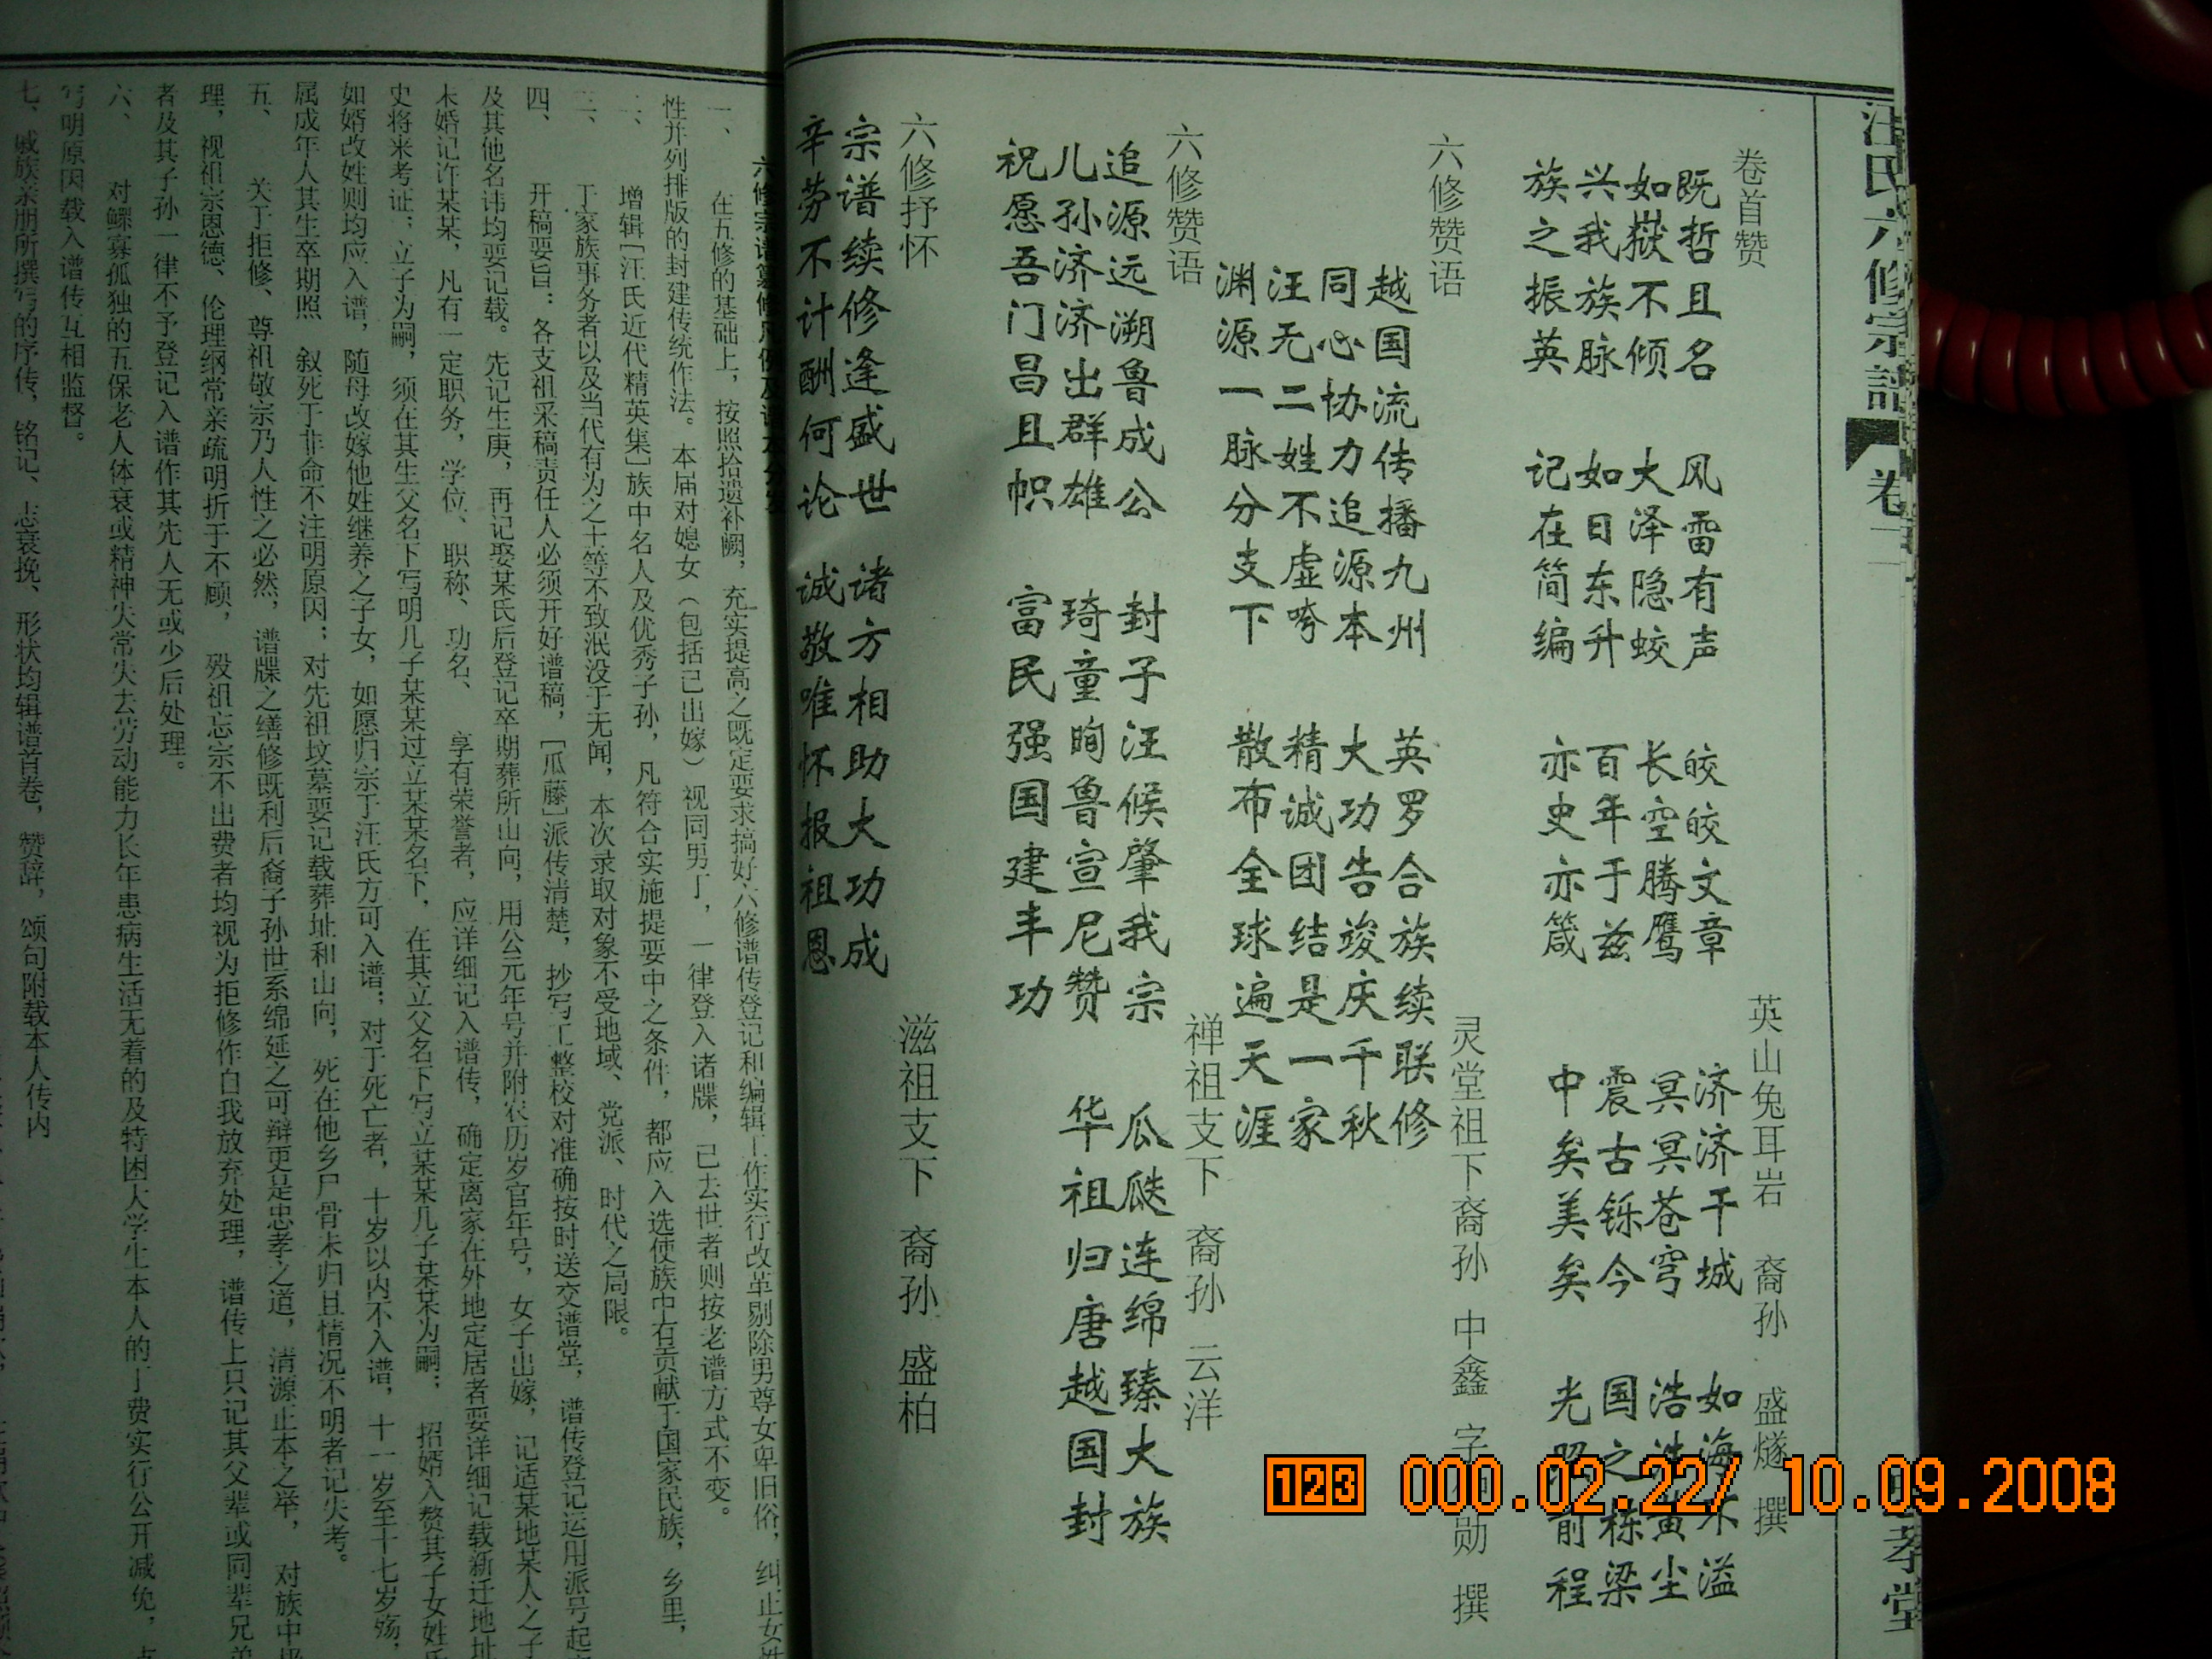 汪氏六修宗谱 卷首
卷首赞 英山兔耳岩 裔孙 盛燧 撰
既哲且名 风雷有声 皎皎文章 济济干城 如海不溢
如嶽不倾 大泽隐蛟 长空腾鹰 冥冥苍穹 浩浩黄尘
兴我族脉 如日东升 百年于兹 震古铄今 国之栋梁
族之振英 记在简编 亦史亦箴 中矣美矣 光照前程
六修赞语 灵堂祖下裔孙 中鑫 字 勋 撰
越国流传播九州 英罗合族续联修
同心协力追源本 大功告竣庆千秋
汪无二姓不虚咵 精诚团结是一家
渊源一脉分支下 散布全球遍天涯
六修赞语 禅祖支下 裔孙 云洋
追源远溯鲁成公 封子汪候肇我宗 瓜瓞连绵臻大族
儿孙济济出群雄 琦童眴鲁宣尼赞 华祖归唐越国封
祝愿吾门昌且帜 富民强国建丰功
六修抒怀 滋祖支下 裔孙 盛柏
宗谱续修逢盛世 诸方相助大功成
辛劳不计酬何论 诚敬唯怀报祖恩
六修宗谱纂修凡例及谱
一、 在五修的基础上，按照拾遗补阙，充实提高之既定要求搞好六修谱传登记和编辑工作实行改革剔除男尊女卑旧俗，纠正女
性并列排版的封建传统作法。本届对媳女（包括已出嫁）视同男丁，一律登入诸牒，已去世者则按老谱方式不变。
二、 增辑［汪氏近代精英集］族中名人及优秀子孙，凡符合实施提要中之条件，都应入选使族中有贡献于国家民族，乡里，
于家族事务者以及当代有为之士等不致泯没于无闻，本次录取对象不受地域、党派、时代之局限。
四、 开稿要旨：各支祖采稿责任人必须开好谱稿，［瓜藤］派传清楚，抄写工整校对准确按时送交谱堂，谱传登记运用派号起
及其他名讳均要记载。先记生庚，再记娶某氏后登记卒期葬所山向，用公元年号并附农历岁官年号，女子出嫁，记适某地某人之子
未婚记许某某，凡有一定职务，学位、职称、功名、享有荣誉者，应详细记入谱传，确定离家在外地定居者要详细记载新迁地址
史将来考证；立子为嗣，须在其生父名下写明几子某某过立某某名下，在其立父名下写立某某几子某某为嗣；招婿入赘其子女姓氏
如婿改姓则均应入谱，随母改嫁他姓继养之子女，如愿归宗于汪氏方可入谱；对于死亡者，十岁以内不入谱，十一岁至十七岁殇，
属成年人其生卒期照 叙死于非命不注明原因；对先祖坟墓要记载葬址和山向，死在他乡尸骨未归且情况不明者记失考。
五、 关于拒修、尊祖敬宗乃人性之必然，谱牒之缮修既利后裔子孙世系绵延之可辩更是忠孝之道，清源正本之举，对族中
理，视祖宗恩德、伦理纲常亲疏明折于不顾，殁祖忘宗不出费者均视为拒修作自我放弃处理，谱传上只记其父辈或同辈兄弟
者及其子孙一律不予登记入谱作其先人无或少后处理。
六、 对鳏寡孤独的五保老人体衰或精神失常失去劳动能力长年患病生活无着的及特困大学生本人的丁费实行公开减免，
写明原因载入谱传互相监督。
七、戚族亲朋所撰写的序传、铭记、志哀挽、形状均辑谱首卷，赞辞，颂句附载本人传内
123 000.02.22/ 10.09.2008